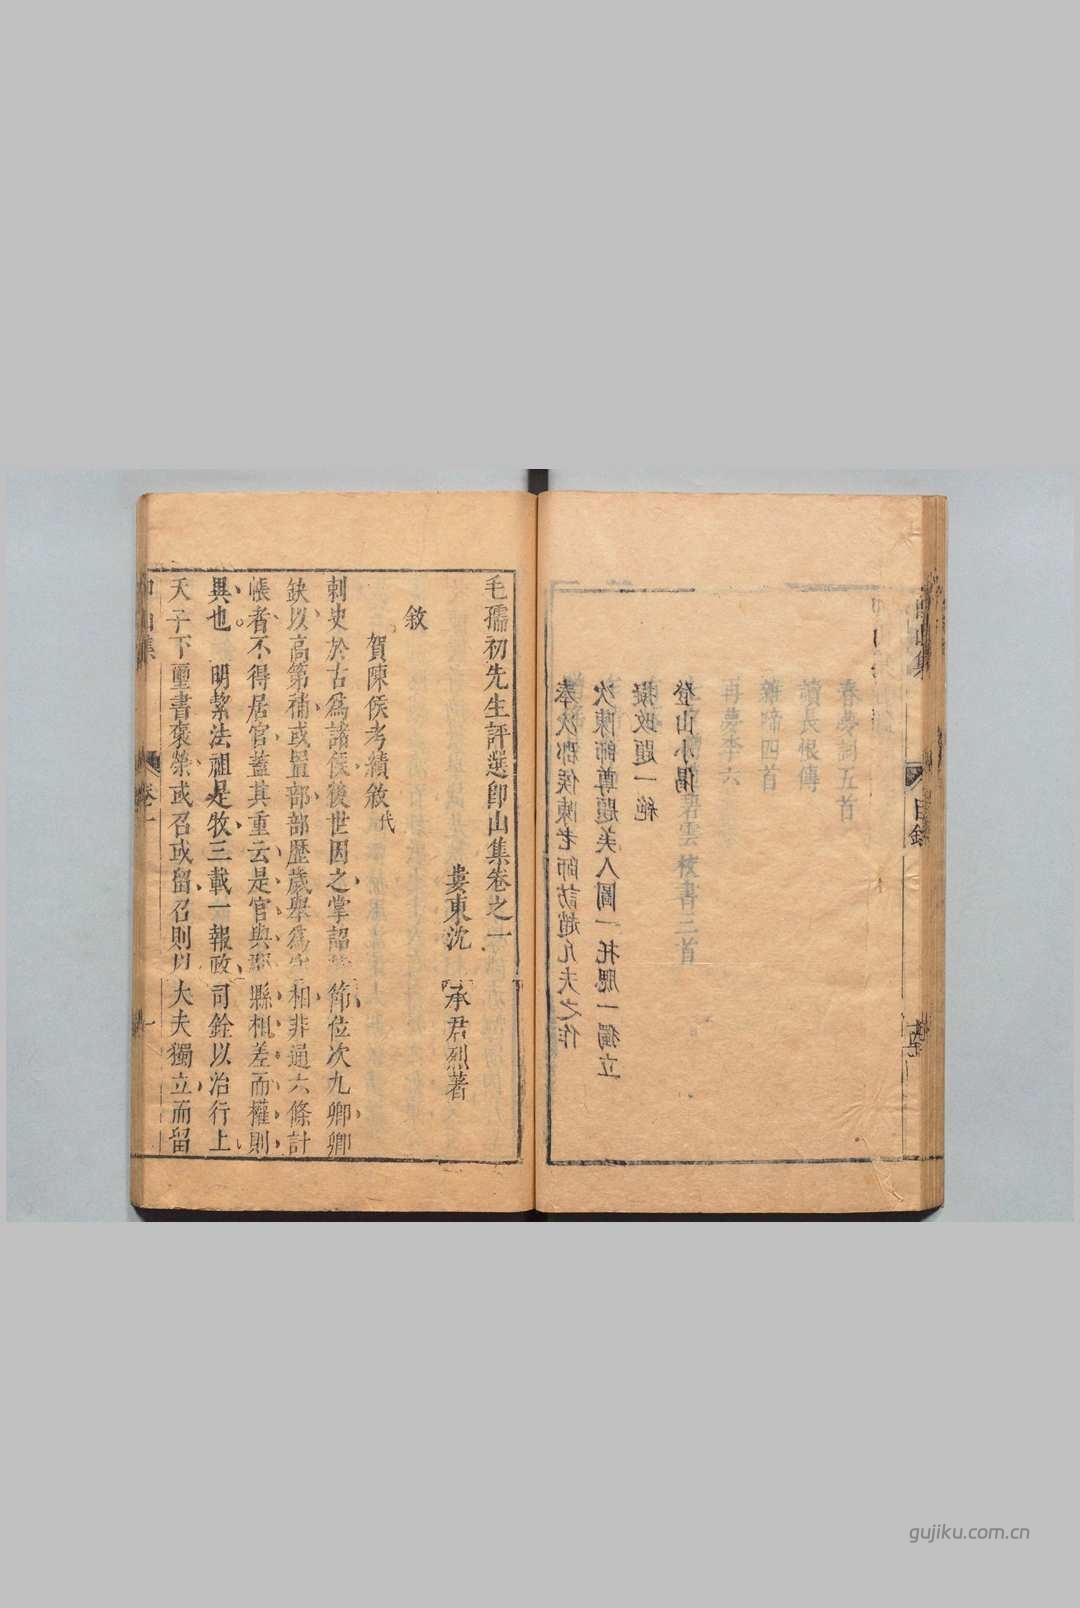 毛孺初先生評選即山集卷之一
婁東沈 承君烈著
敘
賀陳侯考績敘代
刺史於古爲諸侯後世因之掌詔 節位次九卿卿
缺以高第補或置部部歷歲舉爲 相非通六條計
帳者不得居官蓋其重云是官與 縣相差而權則
異也 明絜法祖是牧三載一報政 司銓以治行上
天子下璽書褒榮或召或留召則以 大夫獨立而留
卷一
一
登山小偈
擬改題一絶
次陳師尊題美人圖一托腮一獨立
奉次郡侯陳老師訪趙凡夫之作
春夢詞五首
讀長恨傳
再夢李六
碧雲 校書三首
山集
目錄
gujiku.com.cn